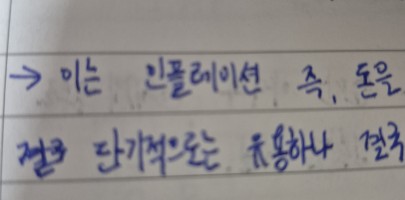 → 이는 인플레이션 즉, 돈을
단기적으로는 유용하나 결국